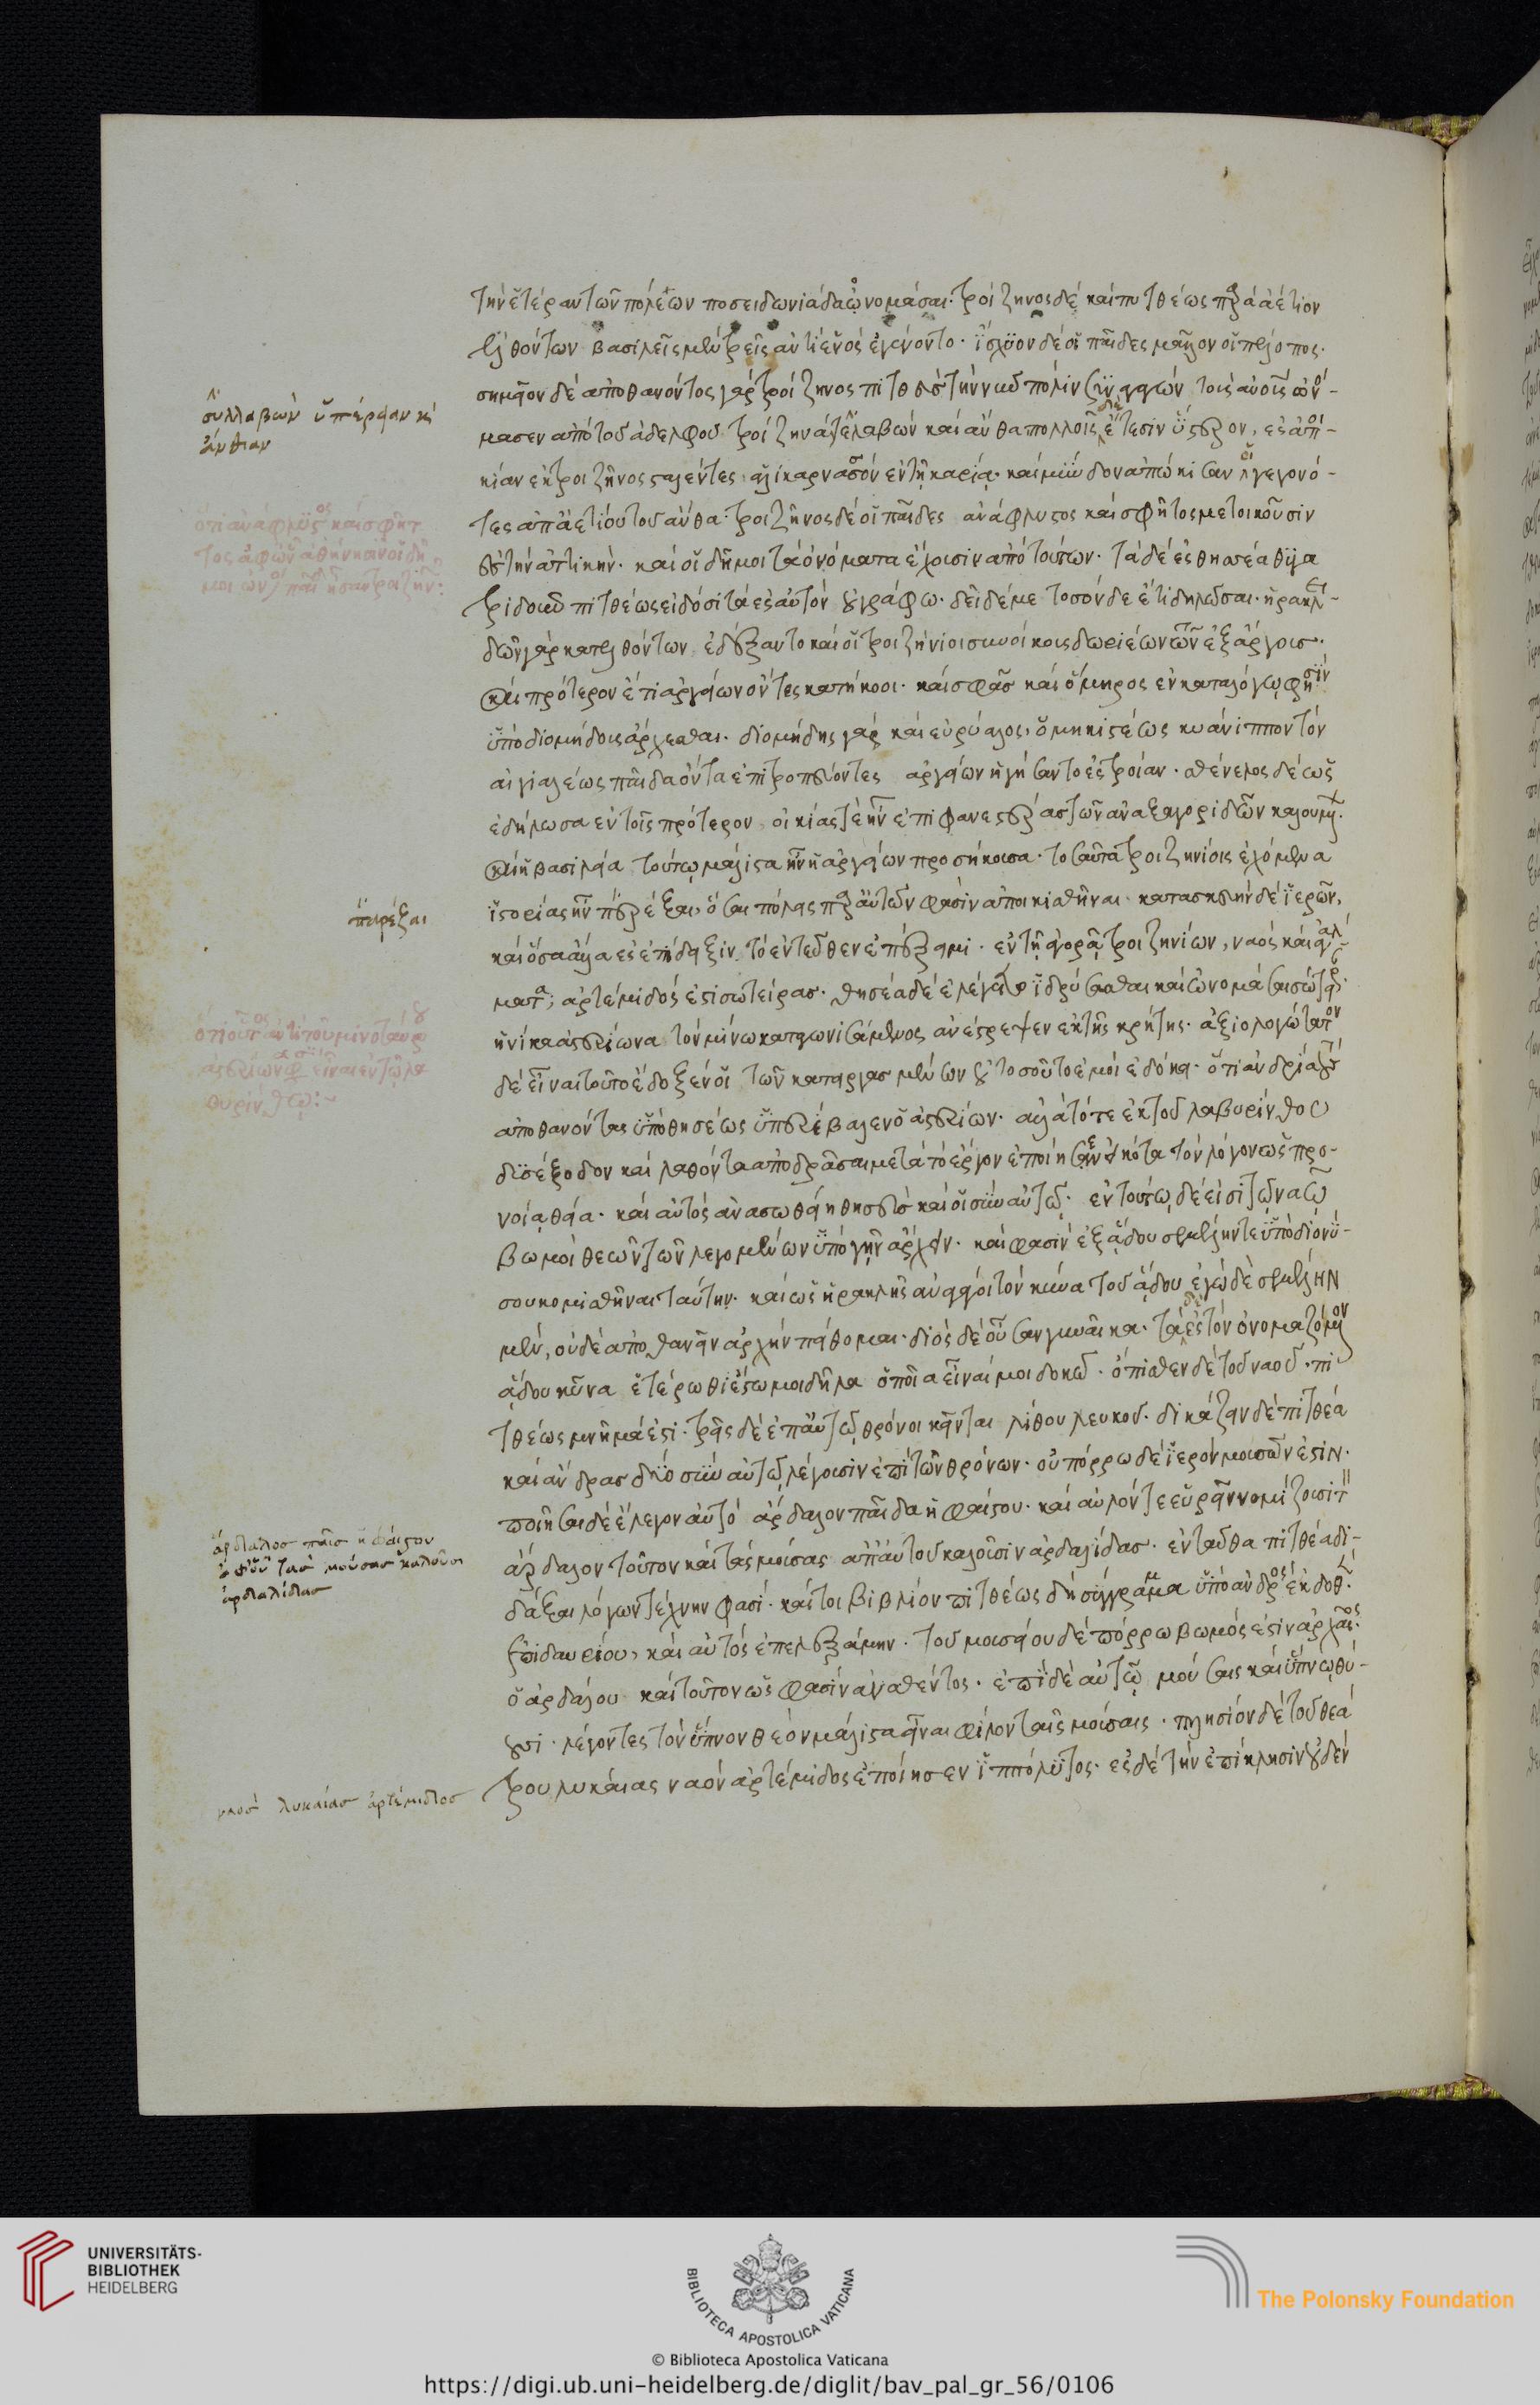 τὴν ἑτέραν τῶν πόλεων ποσειδωνιάδα ὠνομάσαι· τροίζηνος δὲ καὶ πιτθέως παρὰ ἀέτιον
ἐλθόντων βασιλεῖς μὲν τρεῖς ἀντὶ ἑνὸς ἐγένοντο· ἴσχυον δὲ οἱ παῖδες μᾶλλον οἱ πέλοπος·
σημεῖον δὲ ἀποθανόντος γὰρ τροίζηνος πιτθεὺς τὴν νῦν πόλιν
μασεν ἀπὸ τοῦ ἀδελφοῦ τροίζηνα λαβὼν καὶ ἄνθα πολλοῖς δὲ ἔτεσιν ὕστερον, ἐς ἀποι-
κίαν ἐκ τροιζῆνος σταλέντες ἁλικαρνασσὸν ἐν τῇ καρίᾳ καὶ μύνδον ἀπῴκισαν οἱ γεγονό-
τες ἀπ' ἀετίου τοῦ ἄνθα· τροιζῆνος δὲ οἱ παῖδες ἀνάφλυστος καὶ σφῆτος μετοικοῦσιν
ἐς τὴν ἀττικήν· καὶ οἱ δῆμοι τὰ ὀνόματα ἔχουσιν ἀπὸ τούτων· τὰ δὲ ἐς θησέα θυγα
τριδοῦν πιτθέως εἰδόσι τὰ ἐς αὐτὸν οὐ γράφω· δεῖ δέ με τοσόνδε ἔτι δηλῶσαι· ἡρακλει-
δῶν γὰρ κατελθόντων ἐδέξαντο καὶ οἱ τροιζήνιοι συνοίκους δωριέων τῶν ἐξ ἄργους·
καὶ πρότερον ἔτι ἀργείων ὄντες κατήκοοι· καὶ σφᾶς καὶ ὅμηρος ἐν καταλόγῳ φησὶν
ὑπὸ διομήδους ἄρχεσθαι· διομήδης γὰρ καὶ εὐρύαλος, ὁ μηκιστέως κυάνιππον τὸν
αἰγιαλέως παῖδα ὄντα ἐπιτροπεύοντες ἀργείων ἡγήσαντο ἐς τροίαν· σθένελος δὲ ὡς
ἐδήλωσα ἐν τοῖς πρότερον οἰκίας τε ἦν ἐπιφανεστέρας τῶν ἀναξαγοριδῶν καλουμέν·
καὶ ἡ βασιλεία τούτῳ μάλιστα ἦν ἡ ἀργείων προσήκουσα· τοσαῦτα τροιζηνίοις ἐχόμενα
ἱστορίας ἦν παρὲξ καὶ ὅσαι πόλεις παρ' αὐτῶν φασὶν ἀποικισθῆναι· κατασκευὴν δὲ ἱερῶν,
καὶ ὅσα ἄλλα ἐς ἐπίδειξιν τὸ ἐντεῦθεν ἐπέξειμι· ἐν τῇ ἀγορᾷ τροιζηνίων, ναὸς καὶ ἀγάλ-
ματα ἀρτέμιδός ἐστι σωτείρας· θησέα δὲ ἐλέγετο ἱδρύσασθαι καὶ ὀνομάσαι σώτειραν·
ἡνίκα ἀστερίωνα τὸν μίνω καταγωνισάμενος ἀνέστρεψεν ἐκ τῆς κρήτης· ἀξιολογώτατον
δὲ εἶναι τοῦτο ἔδοξέν οἱ τῶν κατειργασμένων οὐ τοσοῦτο ἐμοὶ δοκεῖ· ὅτι ἀνδρίᾳ τοὺς
ἀποθανόντας ὑπὸ θησέως ὑπερέβαλεν ὁ ἀστερίων· ἀλλὰ τό τε ἐκ τοῦ λαβυρίνθου
δισέξοδον καὶ λαθόντα ἀποδρᾶσαι μετὰ τὸ ἔργον ἐποίησεν εἰκότα τὸν λόγον ὡς προ-
νοίᾳ θείᾳ· καὶ αὐτὸς ἀνασωθείη θησεὺς καὶ οἱ σὺν αὐτῷ· ἐν τούτῳ δέ εἰσι τῷ ναῷ
βωμοὶ θεῶν τῶν λεγομένων ὑπὸ γῆν ἄρχειν· καί φασιν ἐξ ᾅδου σεμέλην τε ὑπὸ διονύ-
σου κομισθῆναι ταύτην· καὶ ὡς ἡρακλῆς ἀναγάγοι τὸν κύνα τοῦ ᾅδου ἐγὼ δὲ σεμέλην
μὲν, οὐδὲ ἀποθανεῖν ἀρχὴν πείθομαι· διός δὲ οὖσαν γυναῖκα· τὰ δὲ ἐς τὸν ὀνομαζόμενον
ᾅδου κύνα ἑτέρωθι ἔστω μοι δῆλα ὁποῖα εἶναί μοι δοκεῖ· ὄπισθεν δὲ τοῦ ναοῦ· πι
τθέως μνῆμά ἐστι· τρεῖς δὲ ἐπ' αὐτῷ θρόνοι κεῖνται λίθου λευκοῦ· δικάζειν δὲ πιτθέα
καὶ ἄνδρας δύο σὺν αὐτῷ λέγουσιν ἐπὶ τῶν θρόνων· οὐ πόρρω δὲ ἱερὸν μουσῶν ἐστιν·
ποιῆσαι δὲ ἔλεγον αὐτὸ ἄρδαλον παῖδα ἡφαίστου· καὶ αὐλόν τε εὑρεῖν νομίζουσι τ
ἄρδαλον τοῦτον καὶ τὰς μούσας ἀπ' αὐτοῦ καλοῦσιν ἀρδαλίδας· ἐνταῦθα πιτθέα δι-
δάξαι λόγων τέχνην φασί· καί τοι βιβλίον πιτθέως δὴ σύγγραμμα ὑπὸ ἀνδρὸς ἐκδοθὲν
ἐπιδαυρίου, καὶ αὐτὸς ἐπελεξάμην· τοῦ μουσείου δὲ πόρρω βωμός ἐστιν ἀρχαῖος·
ὁ ἀρδάλου καὶ τοῦτον ὥς φασιν ἀναθέντος· ἐπὶ δὲ αὐτῷ μούσαις καὶ ὕπνῳ θύ-
ουσι· λέγοντες τὸν ὕπνον θεὸν μάλιστα εἶναι φίλον ταῖς μούσαις· πλησίον δὲ τοῦ θεά
τρου λυκείας ναὸν ἀρτέμιδος ἐποίησεν ἱππόλυτος· ἐς δὲ τὴν ἐπίκλησιν οὐδὲν
συλλαβὼν ὑπέρειαν καὶ
ἄνθειαν
παρέξαι
ἄρδαλος παῖς ἡφαίστου
ἀφ' οὗ τὰς μούσας καλοῦσι
ἀρδαλίδας
ναὸς λυκαίας ἀρτέμιδος
UNIVERSITÄTS-
BIBLIOTHEK
HEIDELBERG
BIBLIOTECA APOSTOLICA VATICANA
The Polonsky Foundation
© Biblioteca Apostolica Vaticana
https://digi.ub.uni-heidelberg.de/diglit/bav_pal_gr_56/0106